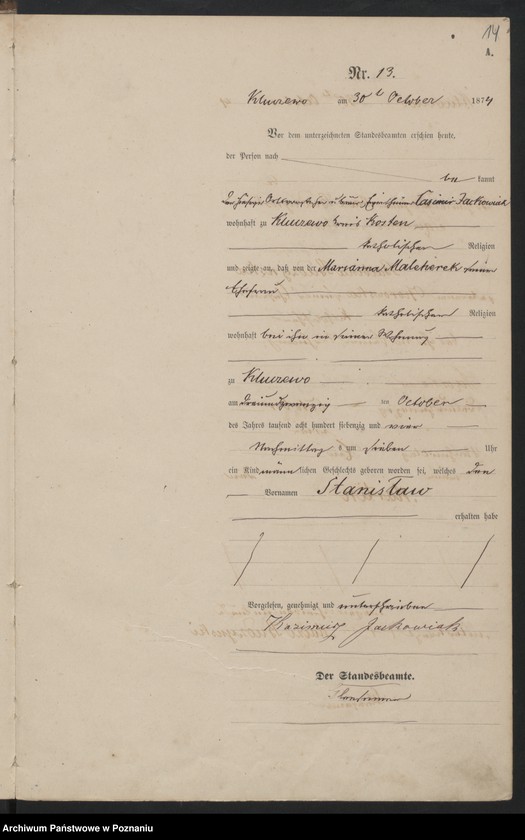 14
A.
Nr. 13.
Kluczewo am 30t October 1874
Vor dem unterzeichneten Standesbeamten erschien heute,
der Person nach
be kannt
Casimir Jackowiak
wohnhaft zu Kluczewo Kreis Kosten
katholischer Religion
und zeigte an, daß von der Marianna Malcherek seiner
Ehefrau
katholischer Religion
wohnhaft bei ihm in seiner Wohnung
zu Kluczewo
am dreiundzwanzig ten October
des Jahres tausend acht hundert siebenzig und vier
Nachmittag s um sieben Uhr
ein Kind männ lichen Geschlechts geboren worden sei, welches den
Vornamen Stanisław
erhalten habe
Vorgelesen, genehmigt und unterschrieben
Kazimierz Jackowiak
Der Standesbeamte.
Archiwum Państwowe w Poznaniu